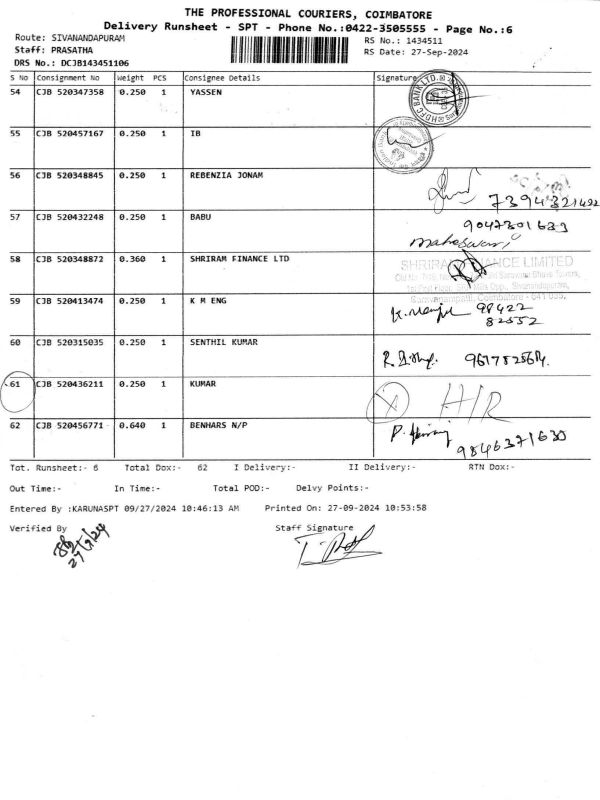 THE PROFESSIONAL COURIERS, COIMBATORE
Delivery Runsheet - SPT - Phone No.:0422-3505555 - Page No.:6
Route: SIVANANDAPURAM
RS No.: 1434511
Staff: PRASATHA
RS Date: 27-Sep-2024
DRS No.: DCJB143451106
S No Consignment No Weight PCS Consignee Details Signature
54 CJB 520347358 0.250 1 YASSEN
HDFC BANK LTD.
55 CJB 520457167 0.250 1 IB
56 CJB 520348845 0.250 1 REBENZIA JONAM
7394321422
57 CJB 520432248 0.250 1 BABU
9047301633
maheswari
58 CJB 520348872 0.360 1 SHRIRAM FINANCE LTD
SHRIRAM FINANCE LIMITED
Saravanampatti, Coimbatore - 641 035,
59 CJB 520413474 0.250 1 K M ENG
98422
82552
60 CJB 520315035 0.250 1 SENTHIL KUMAR
61 CJB 520436211 0.250 1 KUMAR
X H/R
62 CJB 520456771 0.640 1 BENHARS N/P
9846371630
Tot. Runsheet:- 6 Total Dox:- 62 I Delivery:- II Delivery:- RTN Dox:-
Out Time:- In Time:- Total POD:- Delvy Points:-
Entered By :KARUNASPT 09/27/2024 10:46:13 AM Printed On: 27-09-2024 10:53:58
Verified By Staff Signature
27/9/24